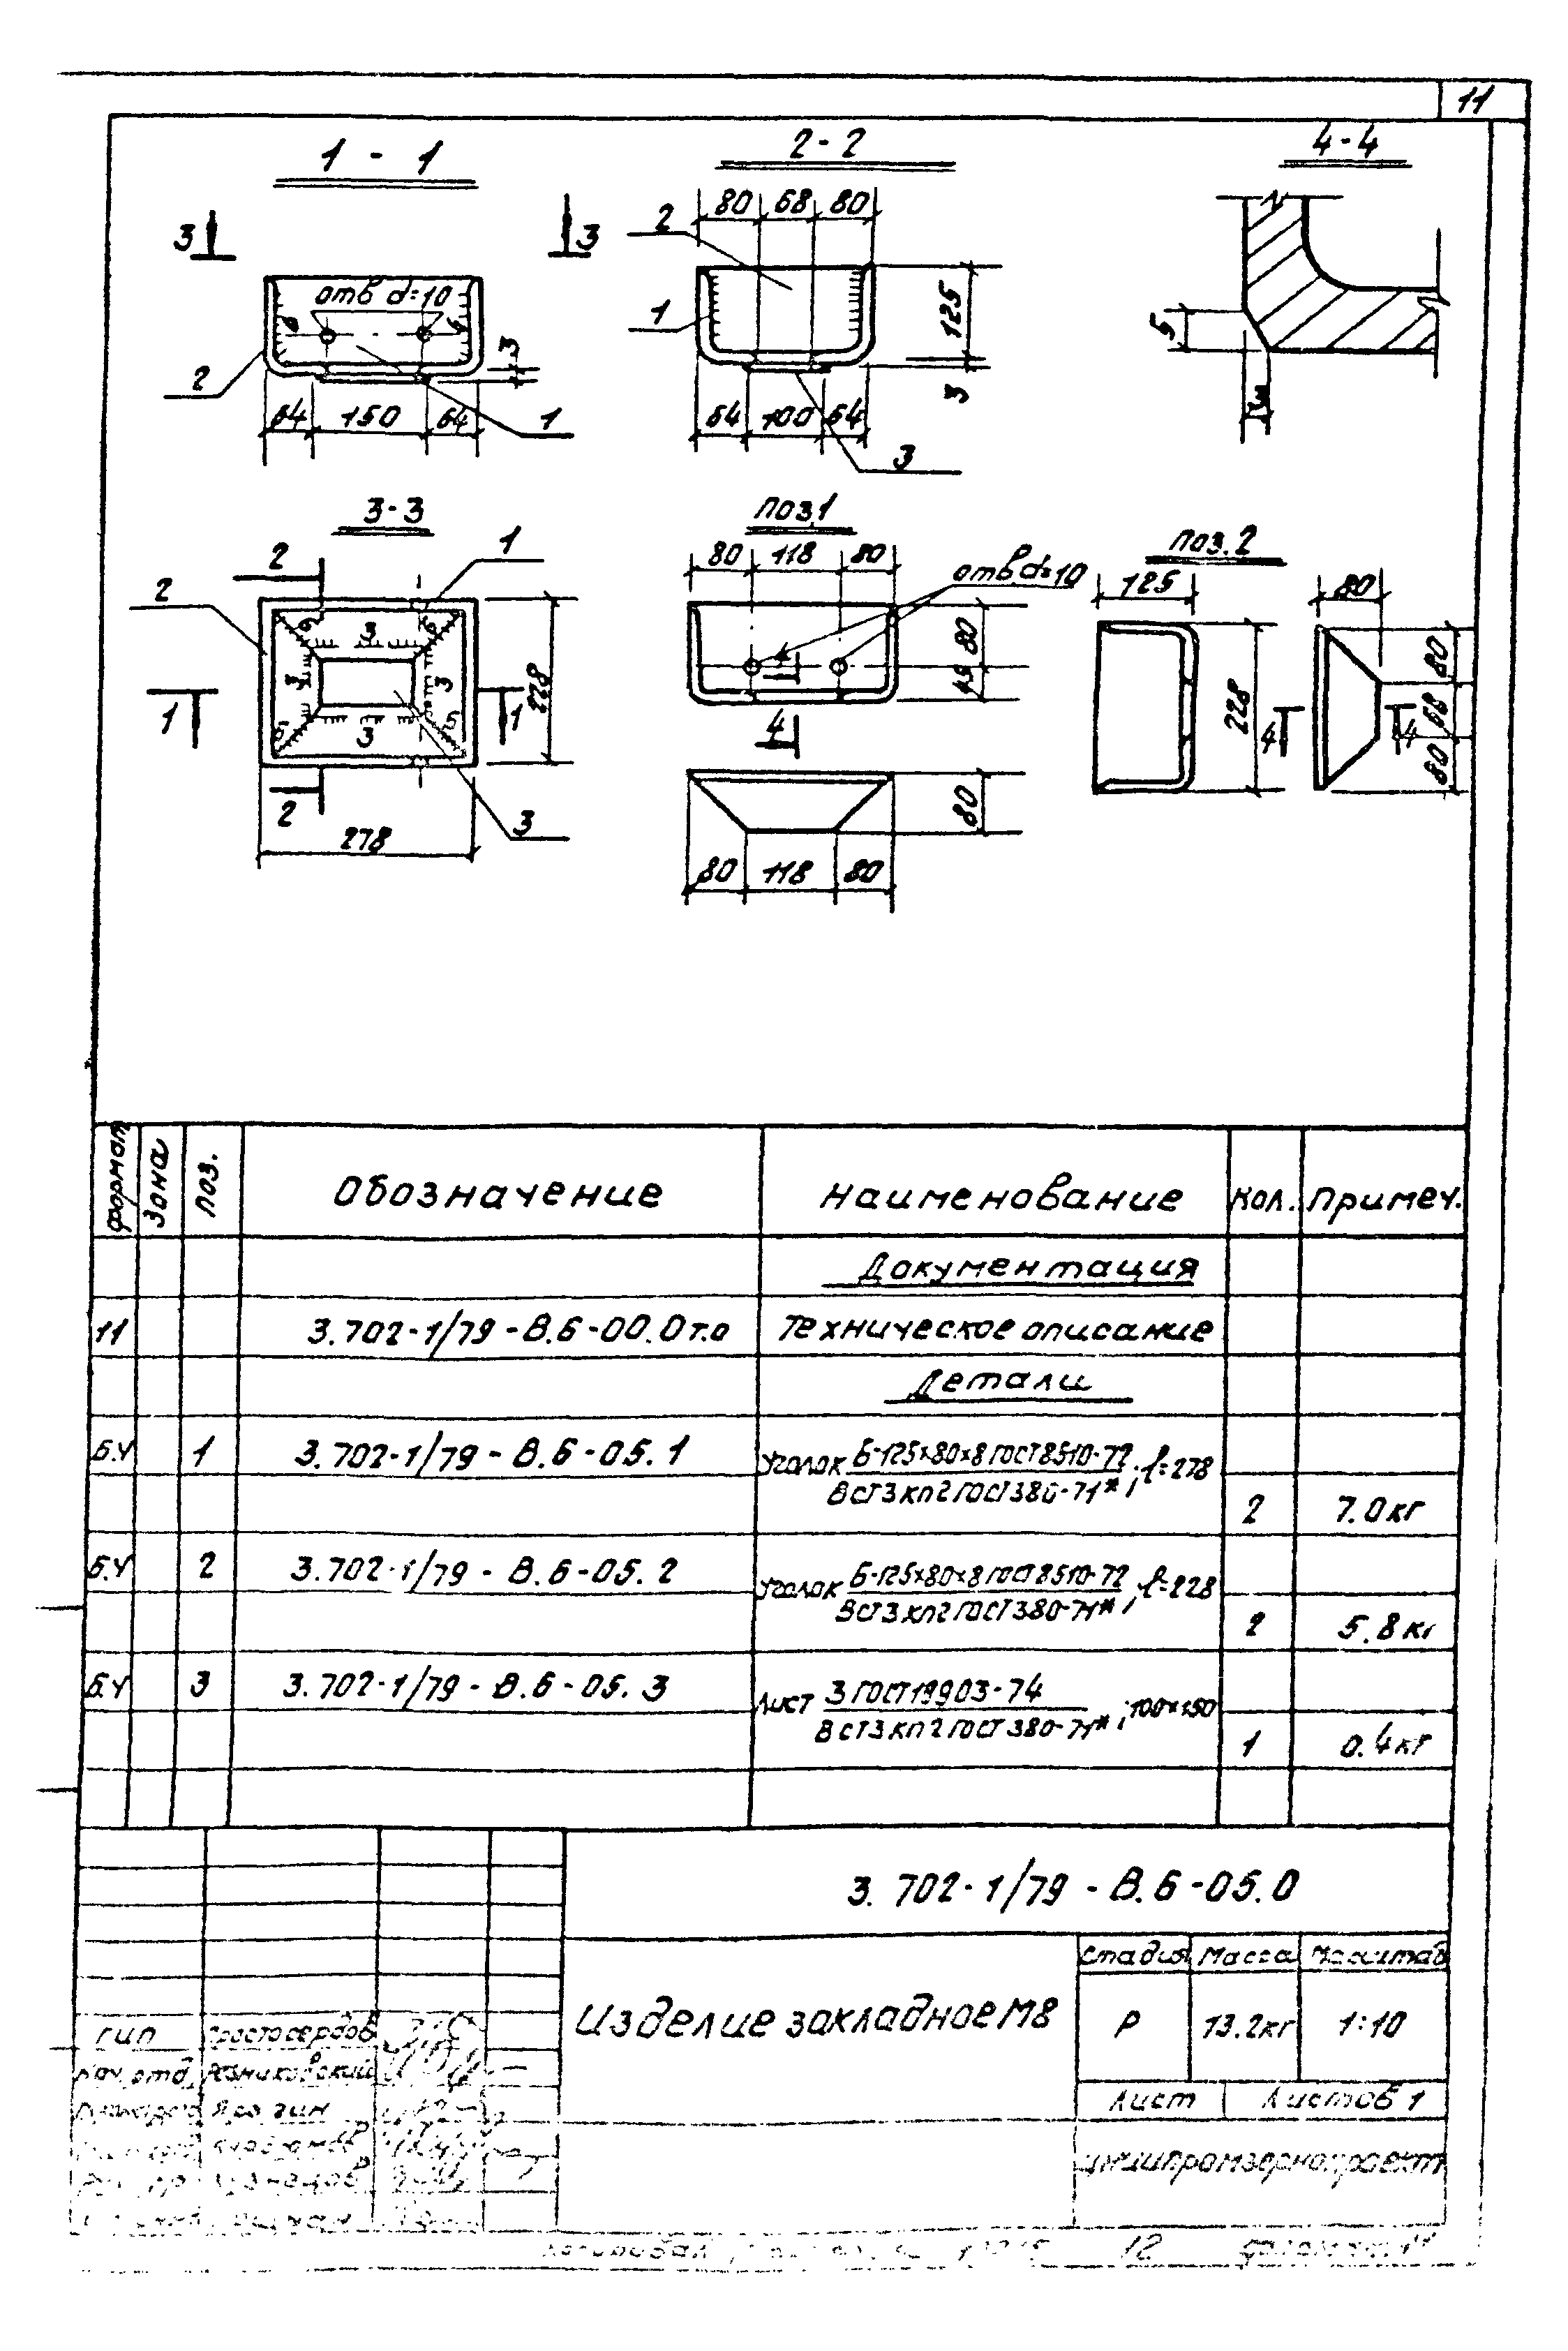 11
1 - 1
2-2
4-4
3 3
отв d=10
6 6
3
2
64 150 64
1
80 68 80
2
1
125
3
64 100 64
3
5
3
3-3
2
1
2
6 3 6
3 3
6 3 5
1 1
228
2
3
278
поз.1
80 118 80
отв.d=10
80
45
4
4
80
80 118 80
поз.2
125
80
228
80
68
80
4 4
формат Зона Поз. Обозначение Наименование Кол. Примеч.
Документация
11 3.702-1/79-В.6-00.0т.о Техническое описание
Детали
Б.Ч 1 3.702-1/79-В.6-05.1 Уголок Б-125×80×8 ГОСТ 8510-72
ВСТ3кп2 ГОСТ 380-71* ; ℓ=278
2 7.0кг
Б.Ч 2 3.702-1/79-В.6-05.2 Уголок Б-125×80×8 ГОСТ 8510-72
ВСТ3кп2 ГОСТ 380-71* ; ℓ=228
2 5.8кг
Б.Ч 3 3.702-1/79-В.6-05.3 Лист 3 ГОСТ 19903-74
ВСТ3кп2 ГОСТ 380-71* ; 100×150
1 0.4кг
3.702-1/79-В.6-05.0
Изделие закладное М8
Стадия Масса Масштаб
Р 13.2кг 1:10
Лист Листов 1
ЦНИИпромзернопроект
ГИП Простосердов
Нач.отд. Резниковский
Ярагин
Кузнецов
Копировал
12
формат 11